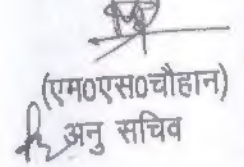 (एम0एस0चौहान)
अनु सचिव